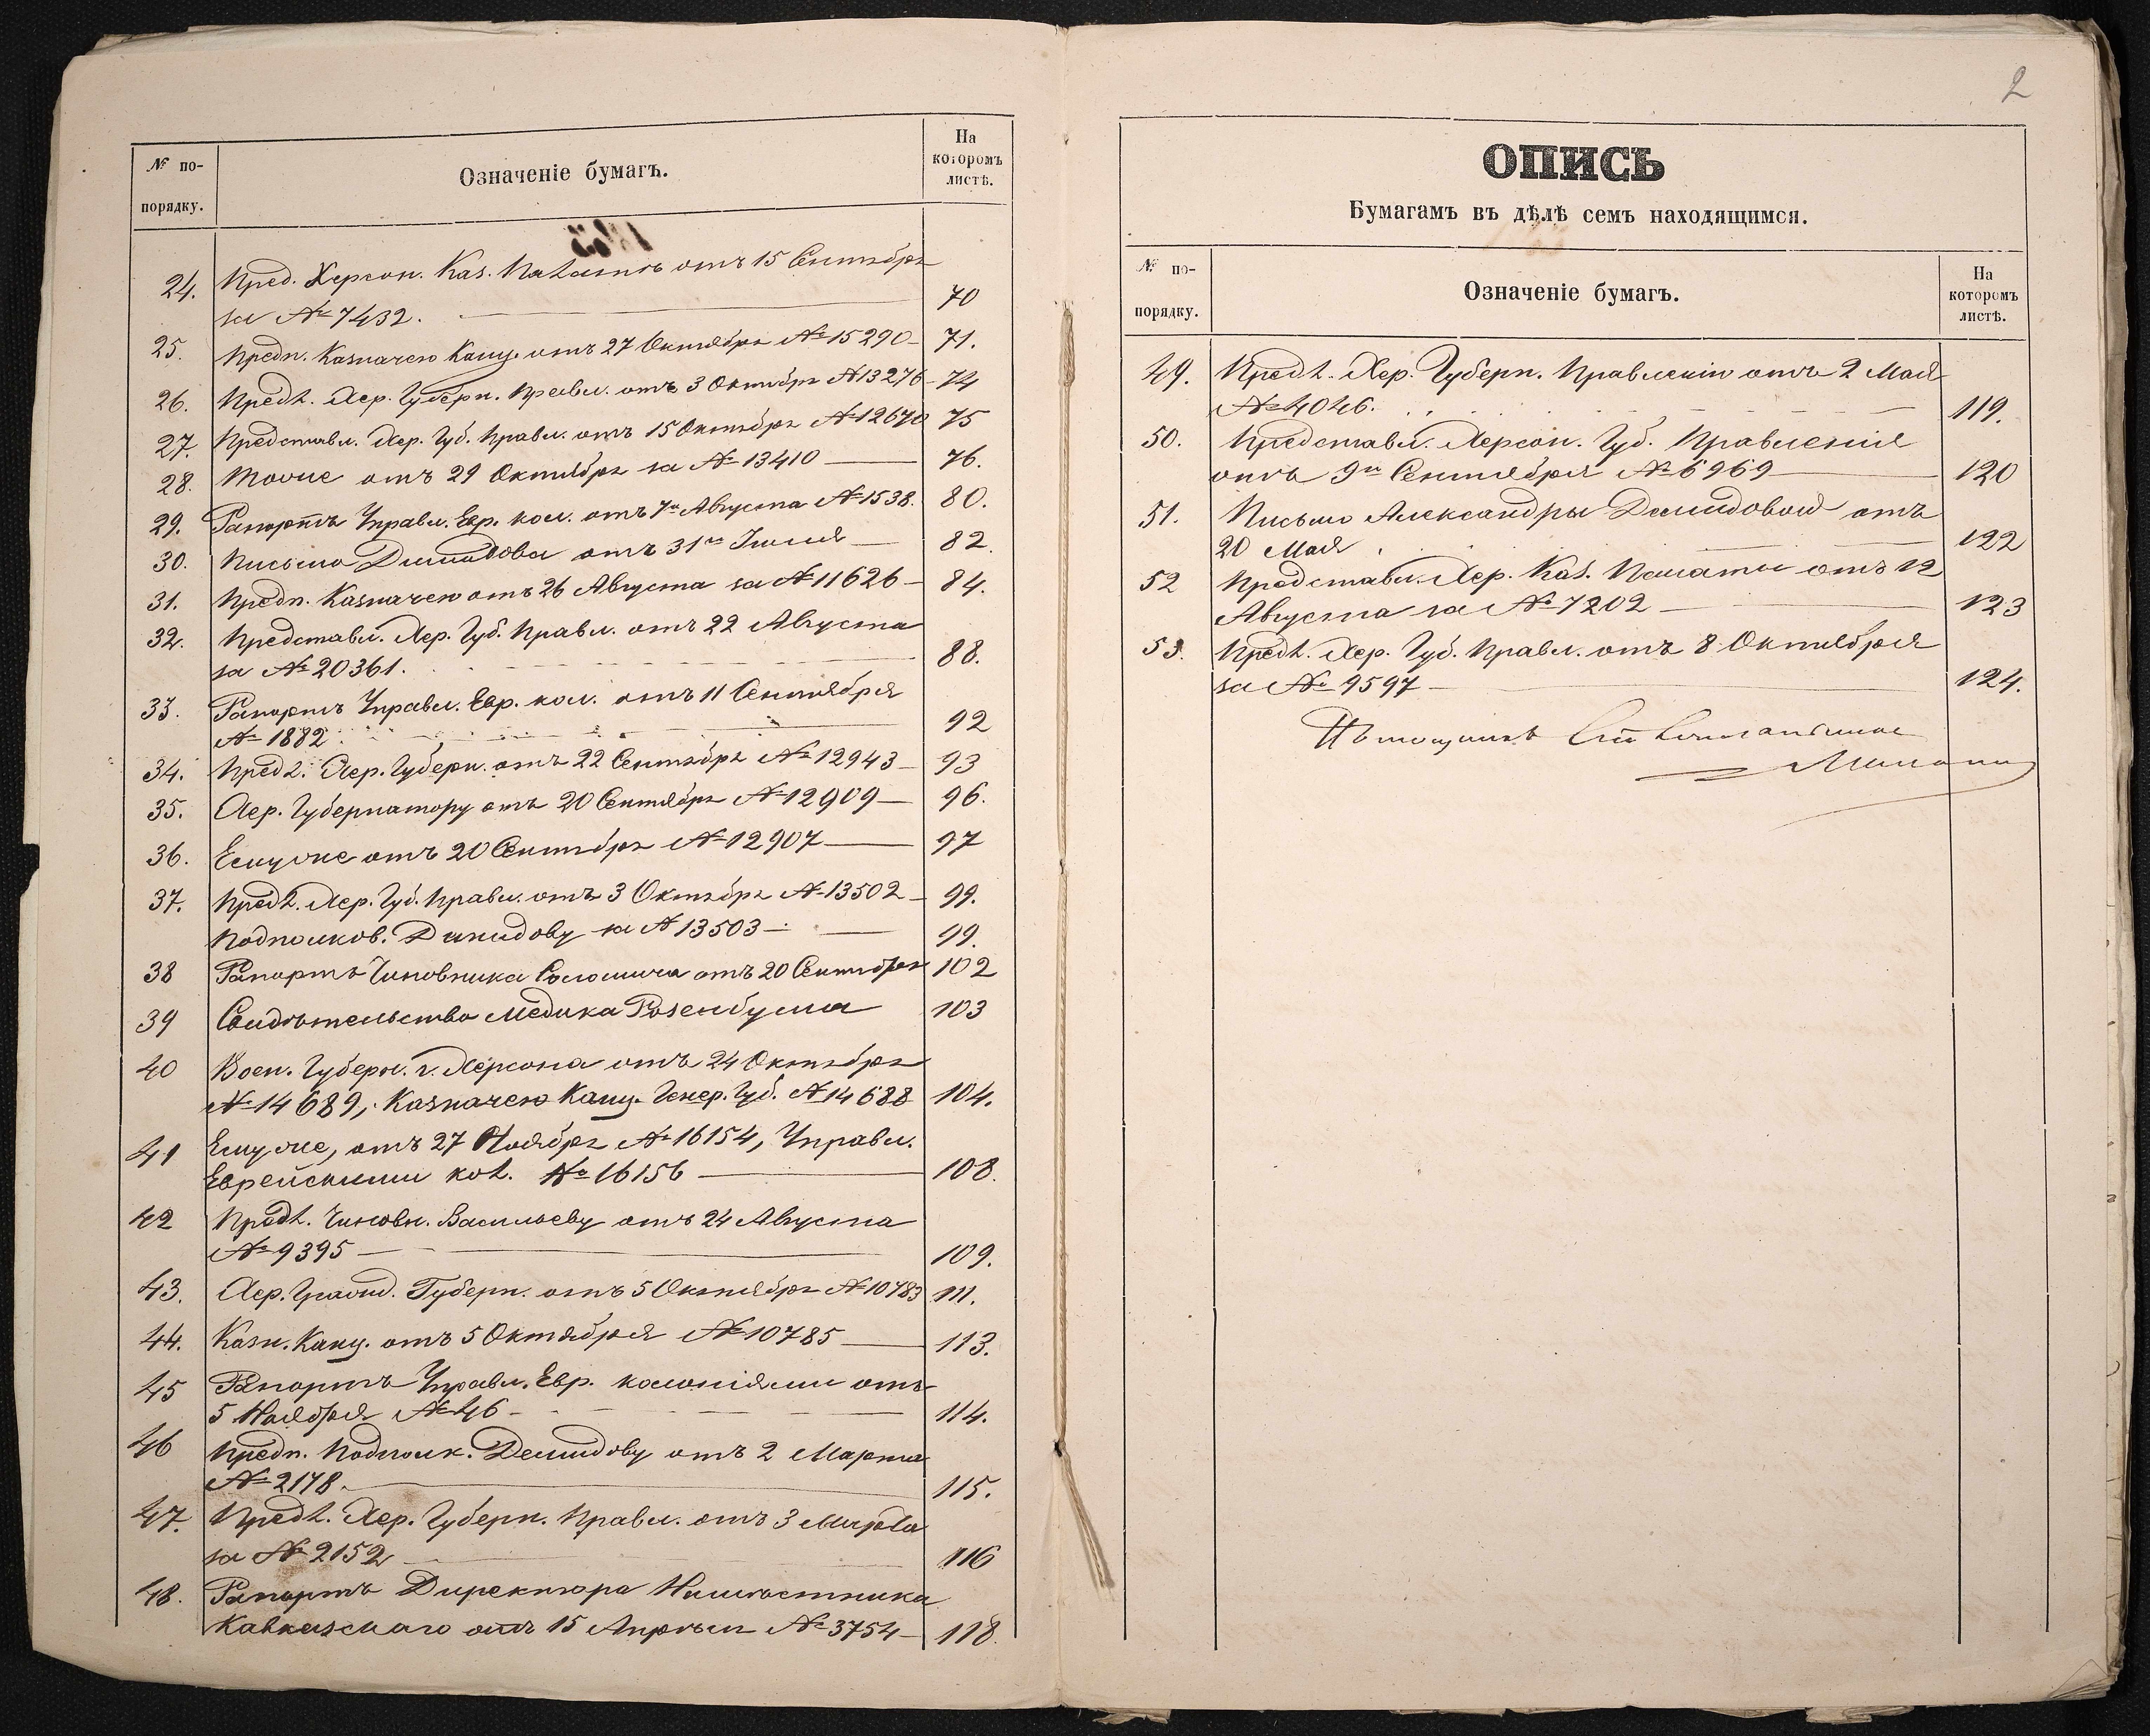 № по-
порядку.
Означеніе бумагъ.
На
которомъ
листѣ.
24. Пред. Херсон. Каз. Палатѣ отъ 15 Сентября
за № 7432. 70
25. Предп. Казначею Канц. отъ 27 Октября № 15290 71.
26. Предл. Хер. Губерн. Правл. отъ 3 Октября № 13276 74
27. Представл. Хер. Губ. Правл. отъ 15 Октября № 12670 75
28. Тоже отъ 29 Октября за № 13410 76.
29. Рапортъ Управл. Евр. кол. отъ 7го Августа № 1538. 80.
30. Письмо Демидова отъ 31го Іюля 82.
31. Предп. Казначею отъ 26 Августа за № 11626 84.
32. Представл. Хер. Губ. Правл. отъ 22 Августа
за № 20361. 88.
33. Рапортъ Управл. Евр. кол. отъ 11 Сентября
№ 1882. 92
34. Предл. Хер. Губерн. отъ 22 Сентября № 12943 93
35. Хер. Губернатору отъ 20 Сентября № 12909 96.
36. Ему же отъ 20 Сентября № 12907 97
37. Предл. Хер. Губ. Правл. отъ 3 Октября № 13502 99.
Подполков. Демидову за № 13503 99.
38 Рапортъ Чиновника отъ 20 Сентября 102
39 Свидѣтельство Медика Розенблюма 103
40 Воен. Губерн. г. Херсона отъ 24 Октября
№ 14689, Казначею Канц. Генер. Губ. № 14688 104.
41 Ему же, отъ 27 Ноября № 16154, Управл.
Еврейскими кол. № 16156 108.
42 Предл. Чиновн. Васильеву отъ 24 Августа
№ 9395 109.
43. Хер. Гражд. Губерн. отъ 5 Октября № 10783 111.
44. Казн. Канц. отъ 5 Октября № 10785 113.
45 Рапортъ Управл. Евр. колоніями отъ
5 Ноября № 46 114.
46 Предп. Подполк. Демидову отъ 2 Марта
№ 2178. 115.
47. Предл. Хер. Губерн. Правл. отъ 3 Марта
за № 2152 116
48. Рапортъ Директора Намѣстника
Кавказскаго отъ 15 Апрѣля № 3754 118.
2
ОПИСЬ
Бумагамъ въ дѣлѣ семъ находящимся.
№ по-
порядку.
Означеніе бумагъ.
На
которомъ
листѣ.
49. Предл. Хер. Губерн. Правленію отъ 2 Мая
№ 4046. 119.
50. Представл. Херсон. Губ. Правленія
отъ 9го Сентября № 6969 120
51. Письмо Александры Демидовой отъ
20 Мая 122
52 Представл. Хер. Каз. Палаты отъ 12
Августа за № 7202 123
53. Предл. Хер. Губ. Правл. отъ 8 Октября
за № 9597 124.